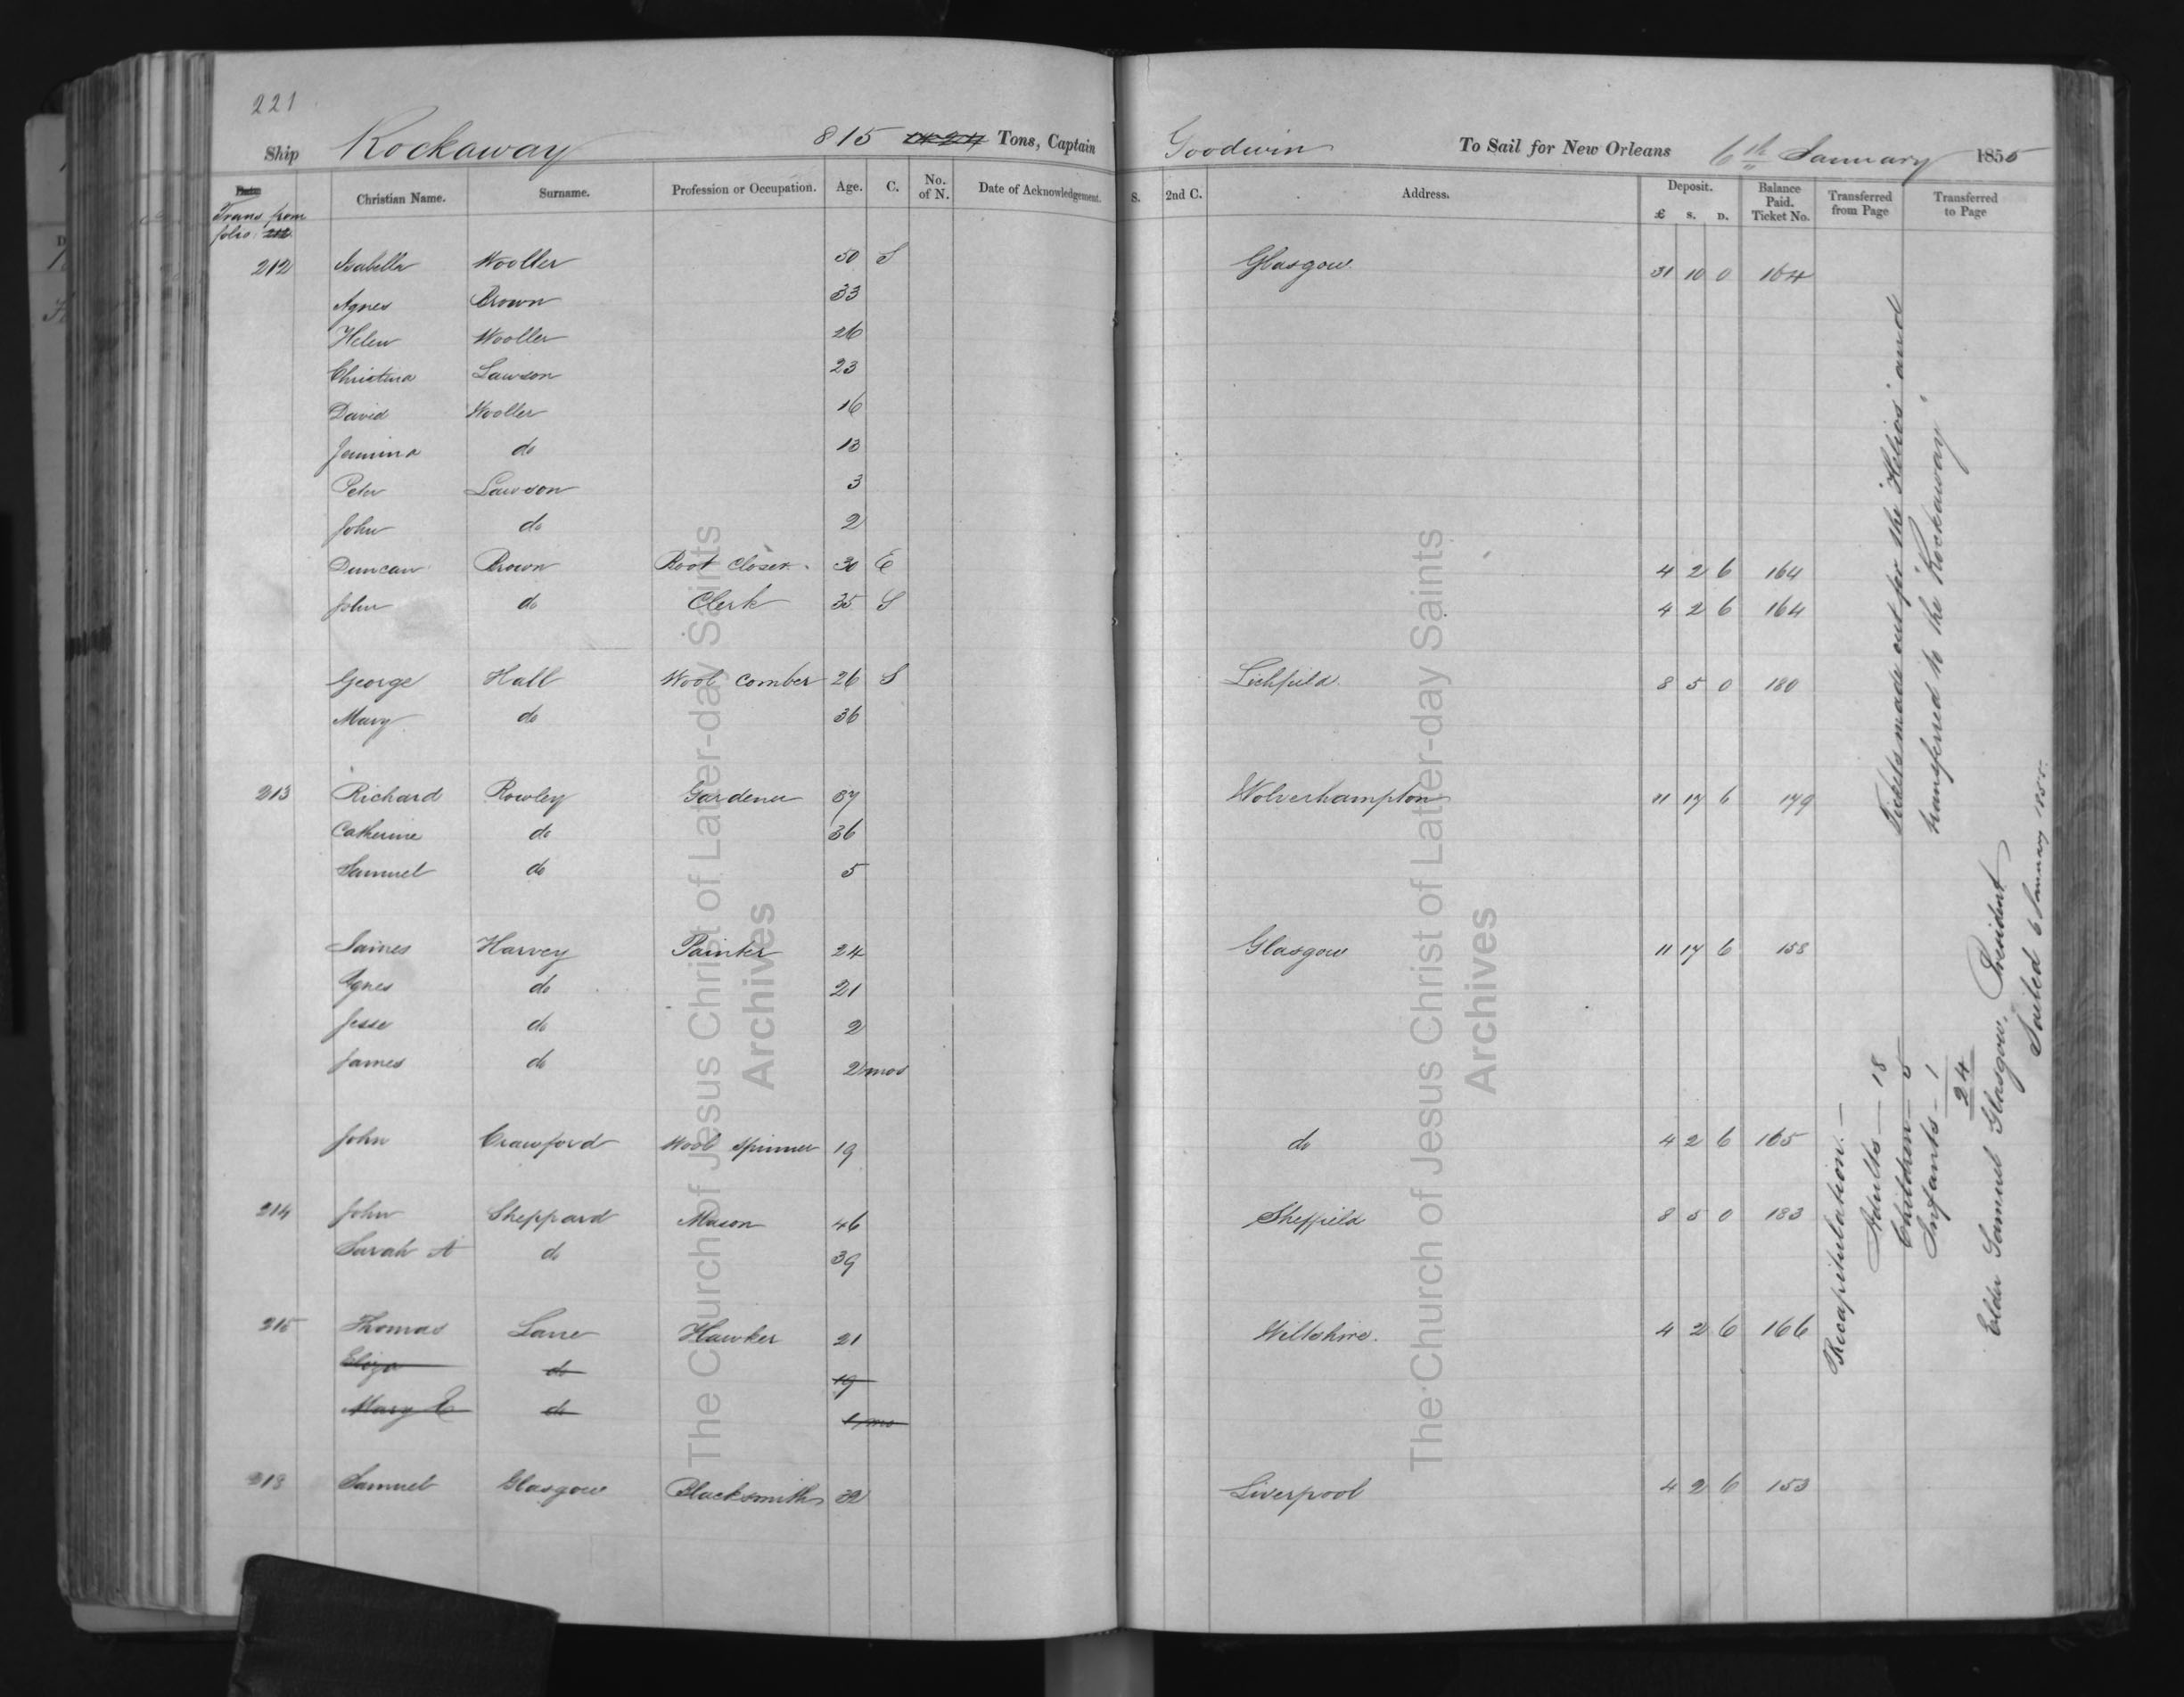 221
Ship Rockaway 815 Tons, Captain Goodwin To Sail for New Orleans 6th January 1855
Date Christian Name. Surname. Profession or Occupation. Age. C. No. of N. Date of Acknowledgement. S. 2nd C. Address. Deposit. £ S. D. Balance Paid. Ticket No. Transferred from Page Transferred to Page
Trans from
folio 212
212 Isabella Wooller 50 S Glasgow 31 10 0 164
Agnes Brown 33
Helen Wooller 26
Christina Lawson 23
David Wooller 16
Jemima do 13
Peter Lawson 3
John do 2
Duncan Brown Boot Closer 30 E 4 2 6 164
John do Clerk 35 S 4 2 6 164
George Hall Wool Comber 26 S Lichfield 8 5 0 180
Mary do 36
213 Richard Rowley Gardener 37 Wolverhampton 11 17 6 179
Catherine do 36
Samuel do 5
James Harvey Painter 24 Glasgow 11 17 6 158
Agnes do 21
Jesse do 2
James do 2 mos
John Crawford Wool Spinner 19 do 4 2 6 165
214 John Sheppard Mason 46 Sheffield 8 5 0 183
Sarah A do 39
215 Thomas Lane Hawker 21 Wiltshire. 4 2 6 166
Eliza do 19
Mary E do
218 Samuel Glasgow Blacksmith 32 Liverpool 4 2 6 153
Tickets made out for the "Helios" and
transferred to the "Rockaway"
Recapitulation.—
Adults — 18
Children — 5
Infants — 1
24
Elder Samuel Glasgow, President
Sailed 6 January 1855.
The Church of Jesus Christ of Latter-day Saints
Archives
The Church of Jesus Christ of Latter-day Saints
Archives